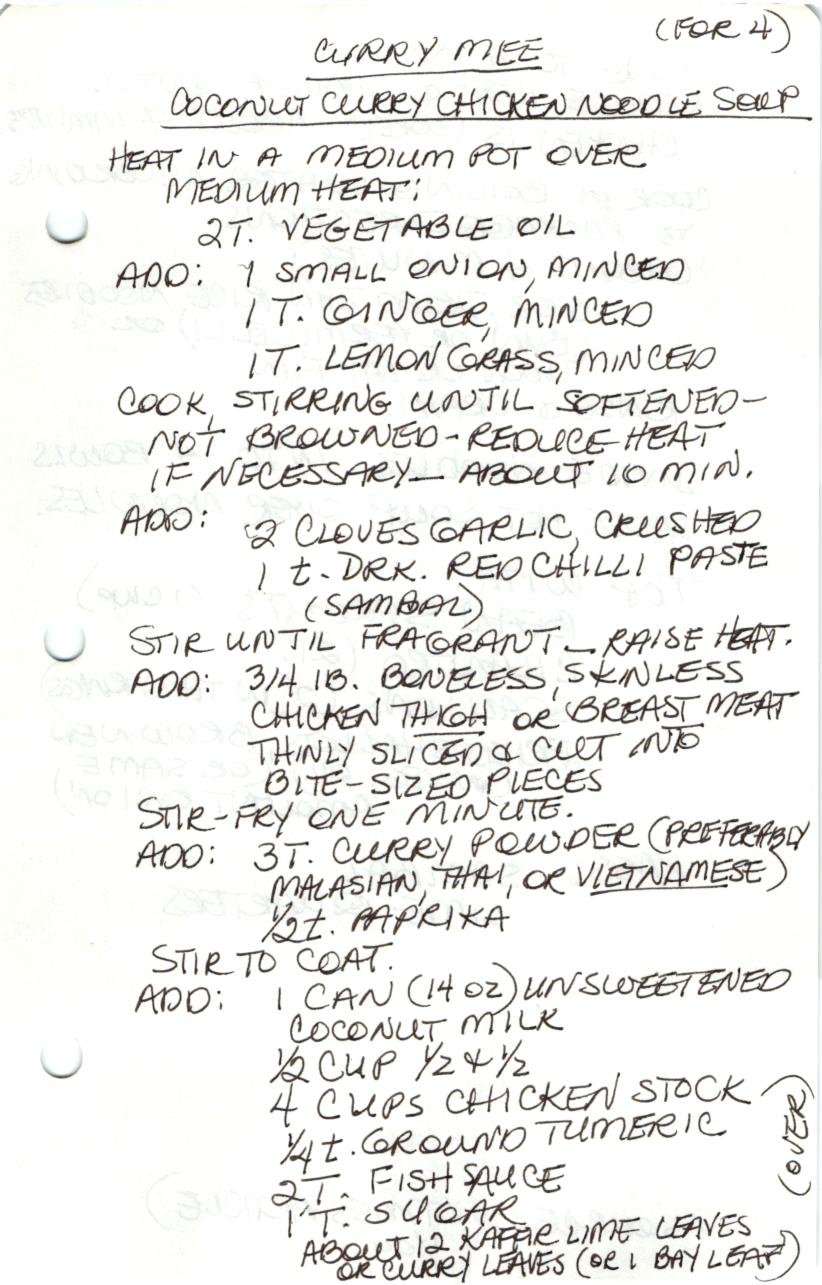 (FOR 4)
CURRY MEE
COCONUT CURRY CHICKEN NOODLE SOUP
HEAT IN A MEDIUM POT OVER
MEDIUM HEAT:
2T. VEGETABLE OIL
ADD: 1 SMALL ONION, MINCED
1 T. GINGER, MINCED
1T. LEMON GRASS, MINCED
COOK, STIRRING UNTIL SOFTENED-
NOT BROWNED-REDUCE HEAT
IF NECESSARY - ABOUT 10 MIN.
ADD: 2 CLOVES GARLIC, CRUSHED
1 t. DRK. RED CHILLI PASTE
(SAMBAL)
STIR UNTIL FRAGRANT - RAISE HEAT.
ADD: 3/4 lB. BONELESS, SKINLESS
CHICKEN THIGH or BREAST MEAT
THINLY SLICED & CUT INTO
BITE-SIZED PIECES
STIR-FRY ONE MINUTE.
ADD: 3T. CURRY POWDER (PREFERABLY
MALASIAN, THAI, OR VIETNAMESE)
1/2 t. PAPRIKA
STIR TO COAT.
ADD: 1 CAN (14 OZ) UNSWEETENED
COCONUT MILK
1/2 CUP 1/2 & 1/2
4 CUPS CHICKEN STOCK
1/4 t. GROUND TUMERIC
2T. FISH SAUCE
1 T. SUGAR
ABOUT 12 KAFFIR LIME LEAVES
OR CURRY LEAVES (OR 1 BAY LEAF)
(OVER)